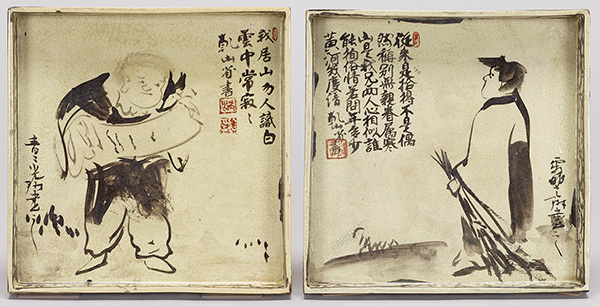 我居山勿人識白
雲中常寂〻
乾山省書
青〻光琳畫之
從来是拾得不是偶
然稱別無親眷屬寒
山是我兄兩人心相似誰
能徇俗情若問年多少
黄河幾度清 乾山省書
光琳畫之